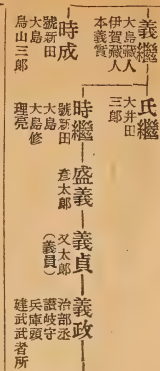 義繼
大島藏人
伊賀藏人
本義實
氏繼
大井田
三郎
時成
號新田
大島
鳥山三郎
時繼
號新田
大島
大島修
理亮
盛義
彥太郎
義貞
又太郎
(義員)
義政
治部丞
讃岐守
兵庫頭
建武武者所